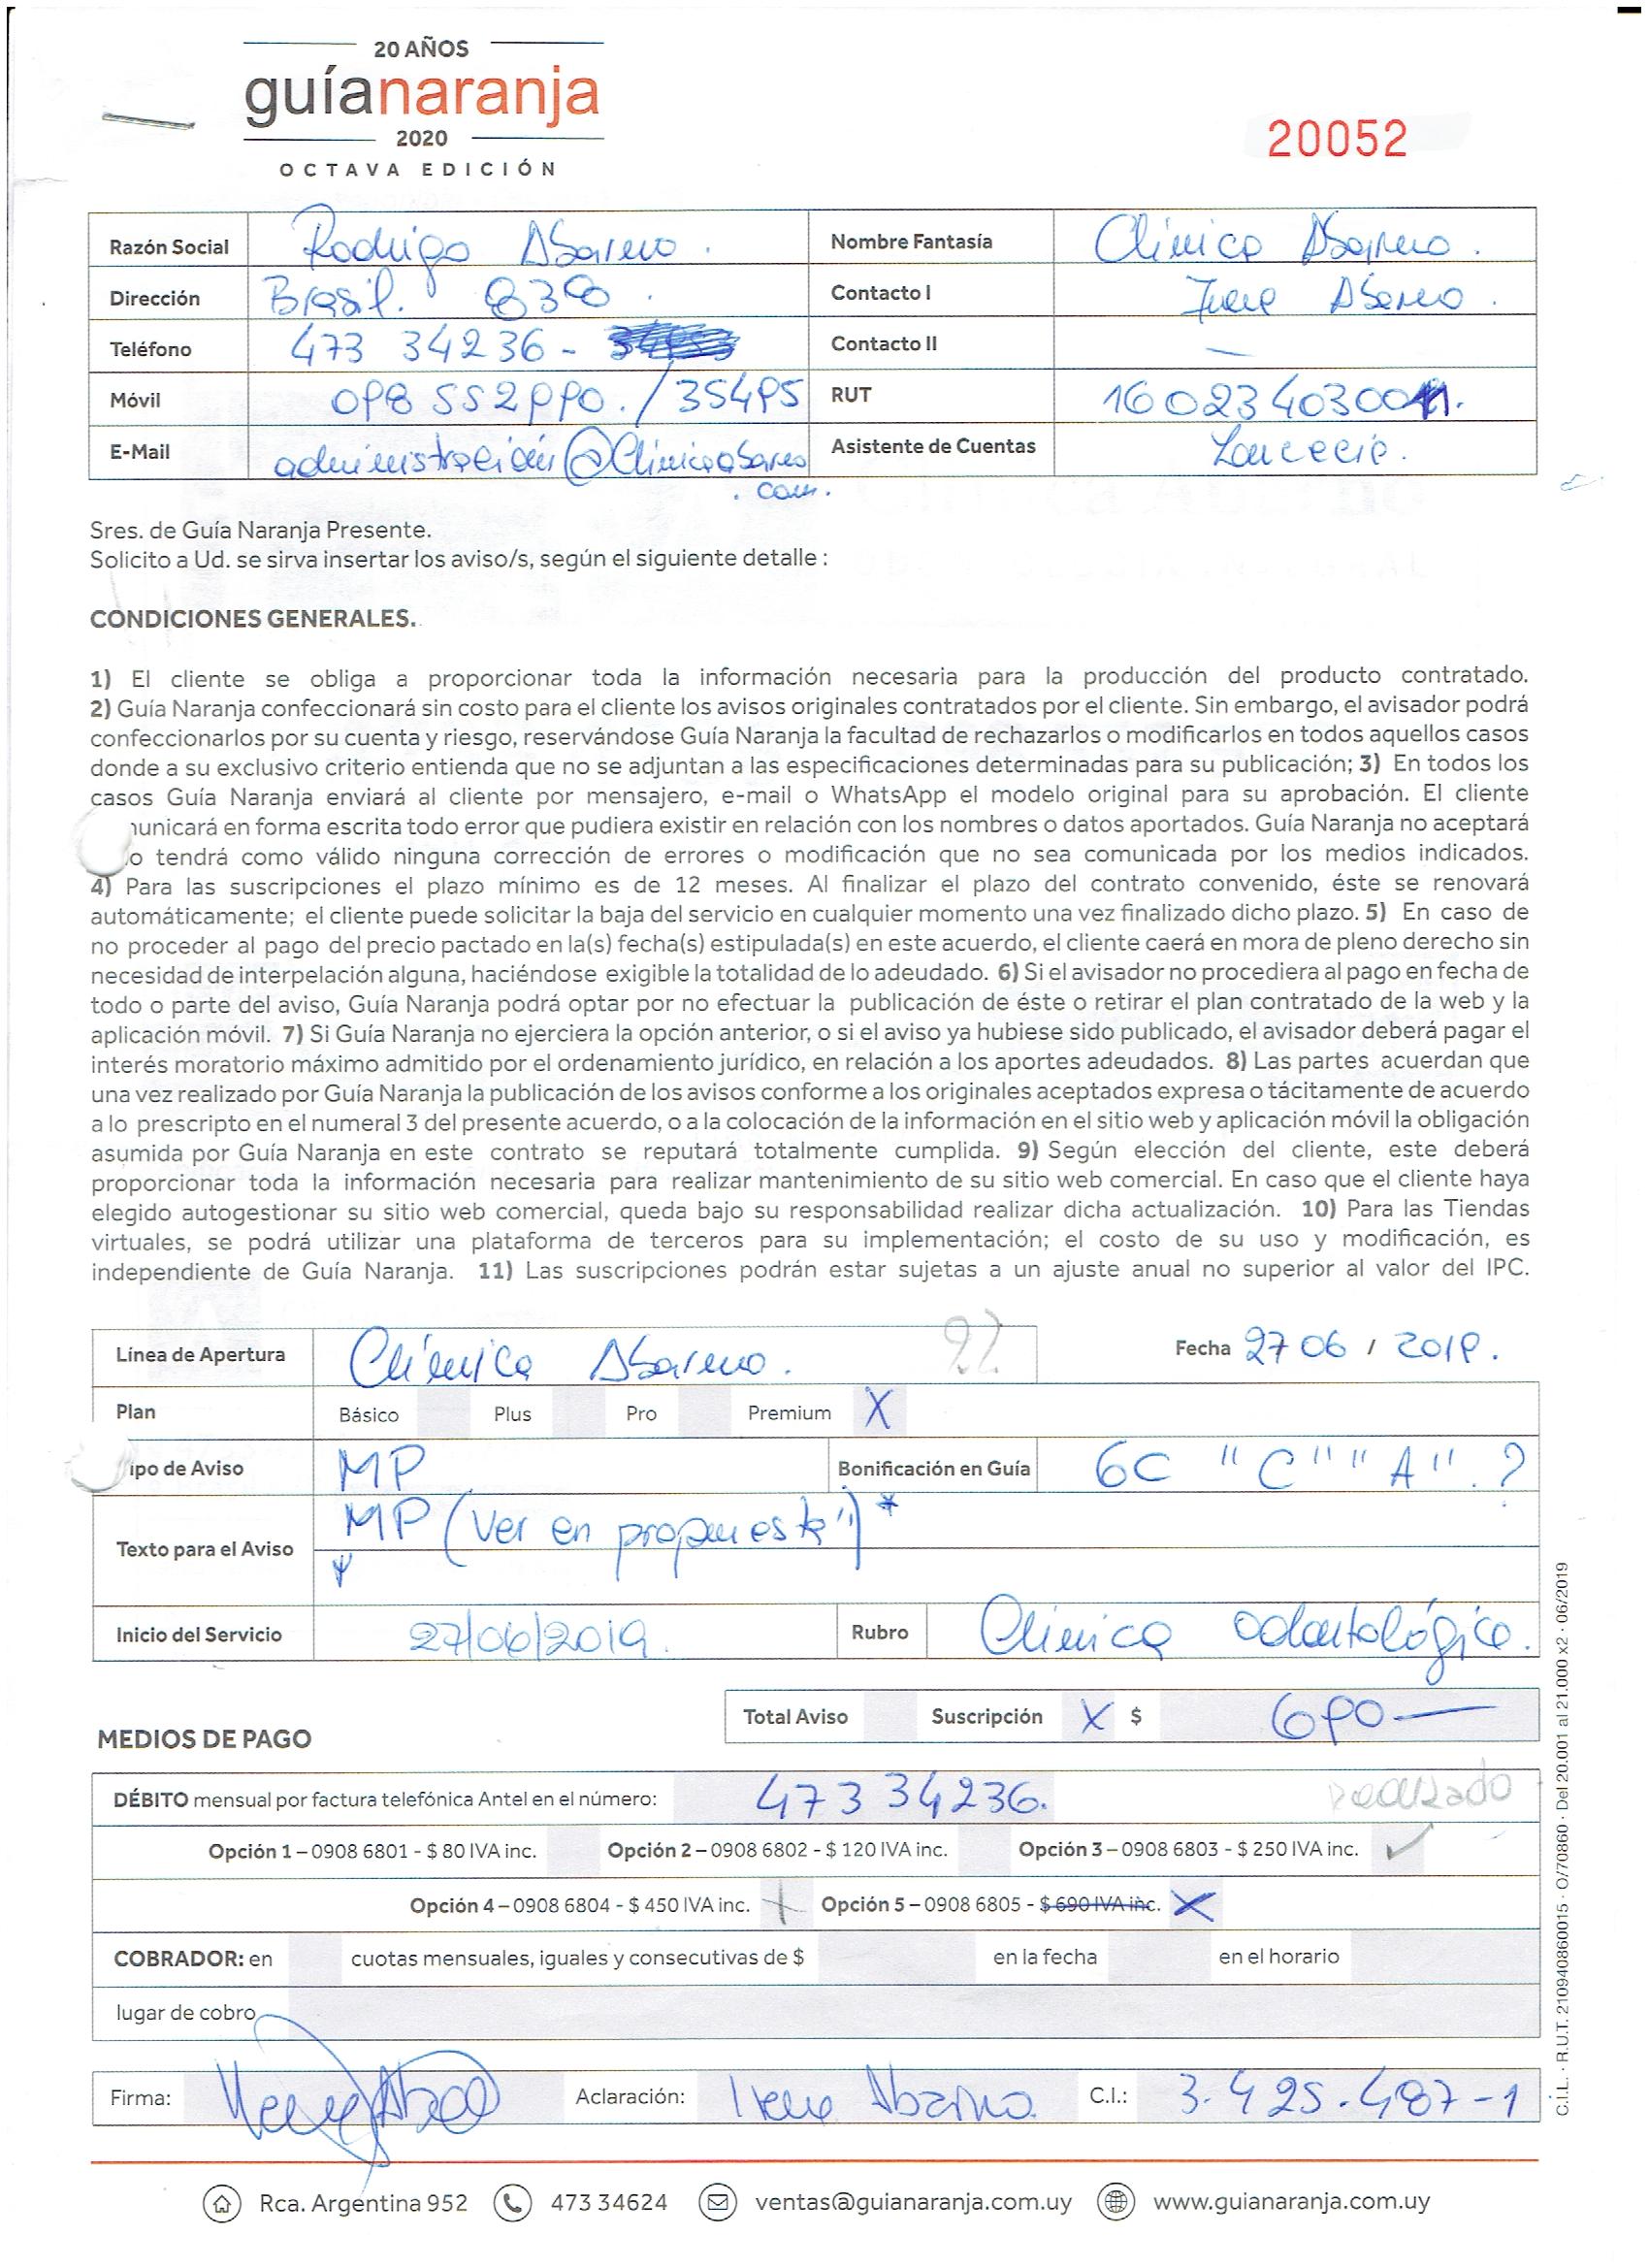 20 AÑOS
guíanaranja
2020
OCTAVA EDICIÓN
20052
Razón Social Rodrigo Abareno. Nombre Fantasía Clínica Abareno.
Dirección Brasil. 830. Contacto I Irene Abareno.
Teléfono 473 34236 - Contacto II —
Móvil 098 552990. / 35495 RUT 160234030011.
E-Mail administración@Clinicaabareno Asistente de Cuentas
.com.
Sres. de Guía Naranja Presente.
Solicito a Ud. se sirva insertar los aviso/s, según el siguiente detalle :
CONDICIONES GENERALES.
1) El cliente se obliga a proporcionar toda la información necesaria para la producción del producto contratado.
2) Guía Naranja confeccionará sin costo para el cliente los avisos originales contratados por el cliente. Sin embargo, el avisador podrá
confeccionarlos por su cuenta y riesgo, reservándose Guía Naranja la facultad de rechazarlos o modificarlos en todos aquellos casos
donde a su exclusivo criterio entienda que no se adjuntan a las especificaciones determinadas para su publicación; 3) En todos los
casos Guía Naranja enviará al cliente por mensajero, e-mail o WhatsApp el modelo original para su aprobación. El cliente
unicará en forma escrita todo error que pudiera existir en relación con los nombres o datos aportados. Guía Naranja no aceptará
o tendrá como válido ninguna corrección de errores o modificación que no sea comunicada por los medios indicados.
4) Para las suscripciones el plazo mínimo es de 12 meses. Al finalizar el plazo del contrato convenido, éste se renovará
automáticamente; el cliente puede solicitar la baja del servicio en cualquier momento una vez finalizado dicho plazo. 5) En caso de
no proceder al pago del precio pactado en la(s) fecha(s) estipulada(s) en este acuerdo, el cliente caerá en mora de pleno derecho sin
necesidad de interpelación alguna, haciéndose exigible la totalidad de lo adeudado. 6) Si el avisador no procediera al pago en fecha de
todo o parte del aviso, Guía Naranja podrá optar por no efectuar la publicación de éste o retirar el plan contratado de la web y la
aplicación móvil. 7) Si Guía Naranja no ejerciera la opción anterior, o si el aviso ya hubiese sido publicado, el avisador deberá pagar el
interés moratorio máximo admitido por el ordenamiento jurídico, en relación a los aportes adeudados. 8) Las partes acuerdan que
una vez realizado por Guía Naranja la publicación de los avisos conforme a los originales aceptados expresa o tácitamente de acuerdo
a lo prescripto en el numeral 3 del presente acuerdo, o a la colocación de la información en el sitio web y aplicación móvil la obligación
asumida por Guía Naranja en este contrato se reputará totalmente cumplida. 9) Según elección del cliente, este deberá
proporcionar toda la información necesaria para realizar mantenimiento de su sitio web comercial. En caso que el cliente haya
elegido autogestionar su sitio web comercial, queda bajo su responsabilidad realizar dicha actualización. 10) Para las Tiendas
virtuales, se podrá utilizar una plataforma de terceros para su implementación; el costo de su uso y modificación, es
independiente de Guía Naranja. 11) Las suscripciones podrán estar sujetas a un ajuste anual no superior al valor del IPC.
Línea de Apertura Clínica Abareno. 22 Fecha 27 06 / 2019.
Plan Básico Plus Pro Premium X
ipo de Aviso MP Bonificación en Guía 6C "C" "A". ?
Texto para el Aviso MP (Ver en propuesta") *
Inicio del Servicio 27/06/2019. Rubro Clínica odontológica.
Total Aviso Suscripción X $ 690—
MEDIOS DE PAGO
DÉBITO mensual por factura telefónica Antel en el número: 473 34236. Realizado
Opción 1 – 0908 6801 - $ 80 IVA inc. Opción 2 – 0908 6802 - $ 120 IVA inc. Opción 3 – 0908 6803 - $ 250 IVA inc. ✓
Opción 4 – 0908 6804 - $ 450 IVA inc. + Opción 5 – 0908 6805 - $ 690 IVA inc. X
COBRADOR: en cuotas mensuales, iguales y consecutivas de $ en la fecha en el horario
lugar de cobro
Firma: Aclaración: Irene Abareno C.I.: 3.425.487-1
Rca. Argentina 952 473 34624 ventas@guianaranja.com.uy www.guianaranja.com.uy
C.I.L. · R.U.T. 210940860015 · O/70860 · Del 20.001 al 21.000 x2 · 06/2019